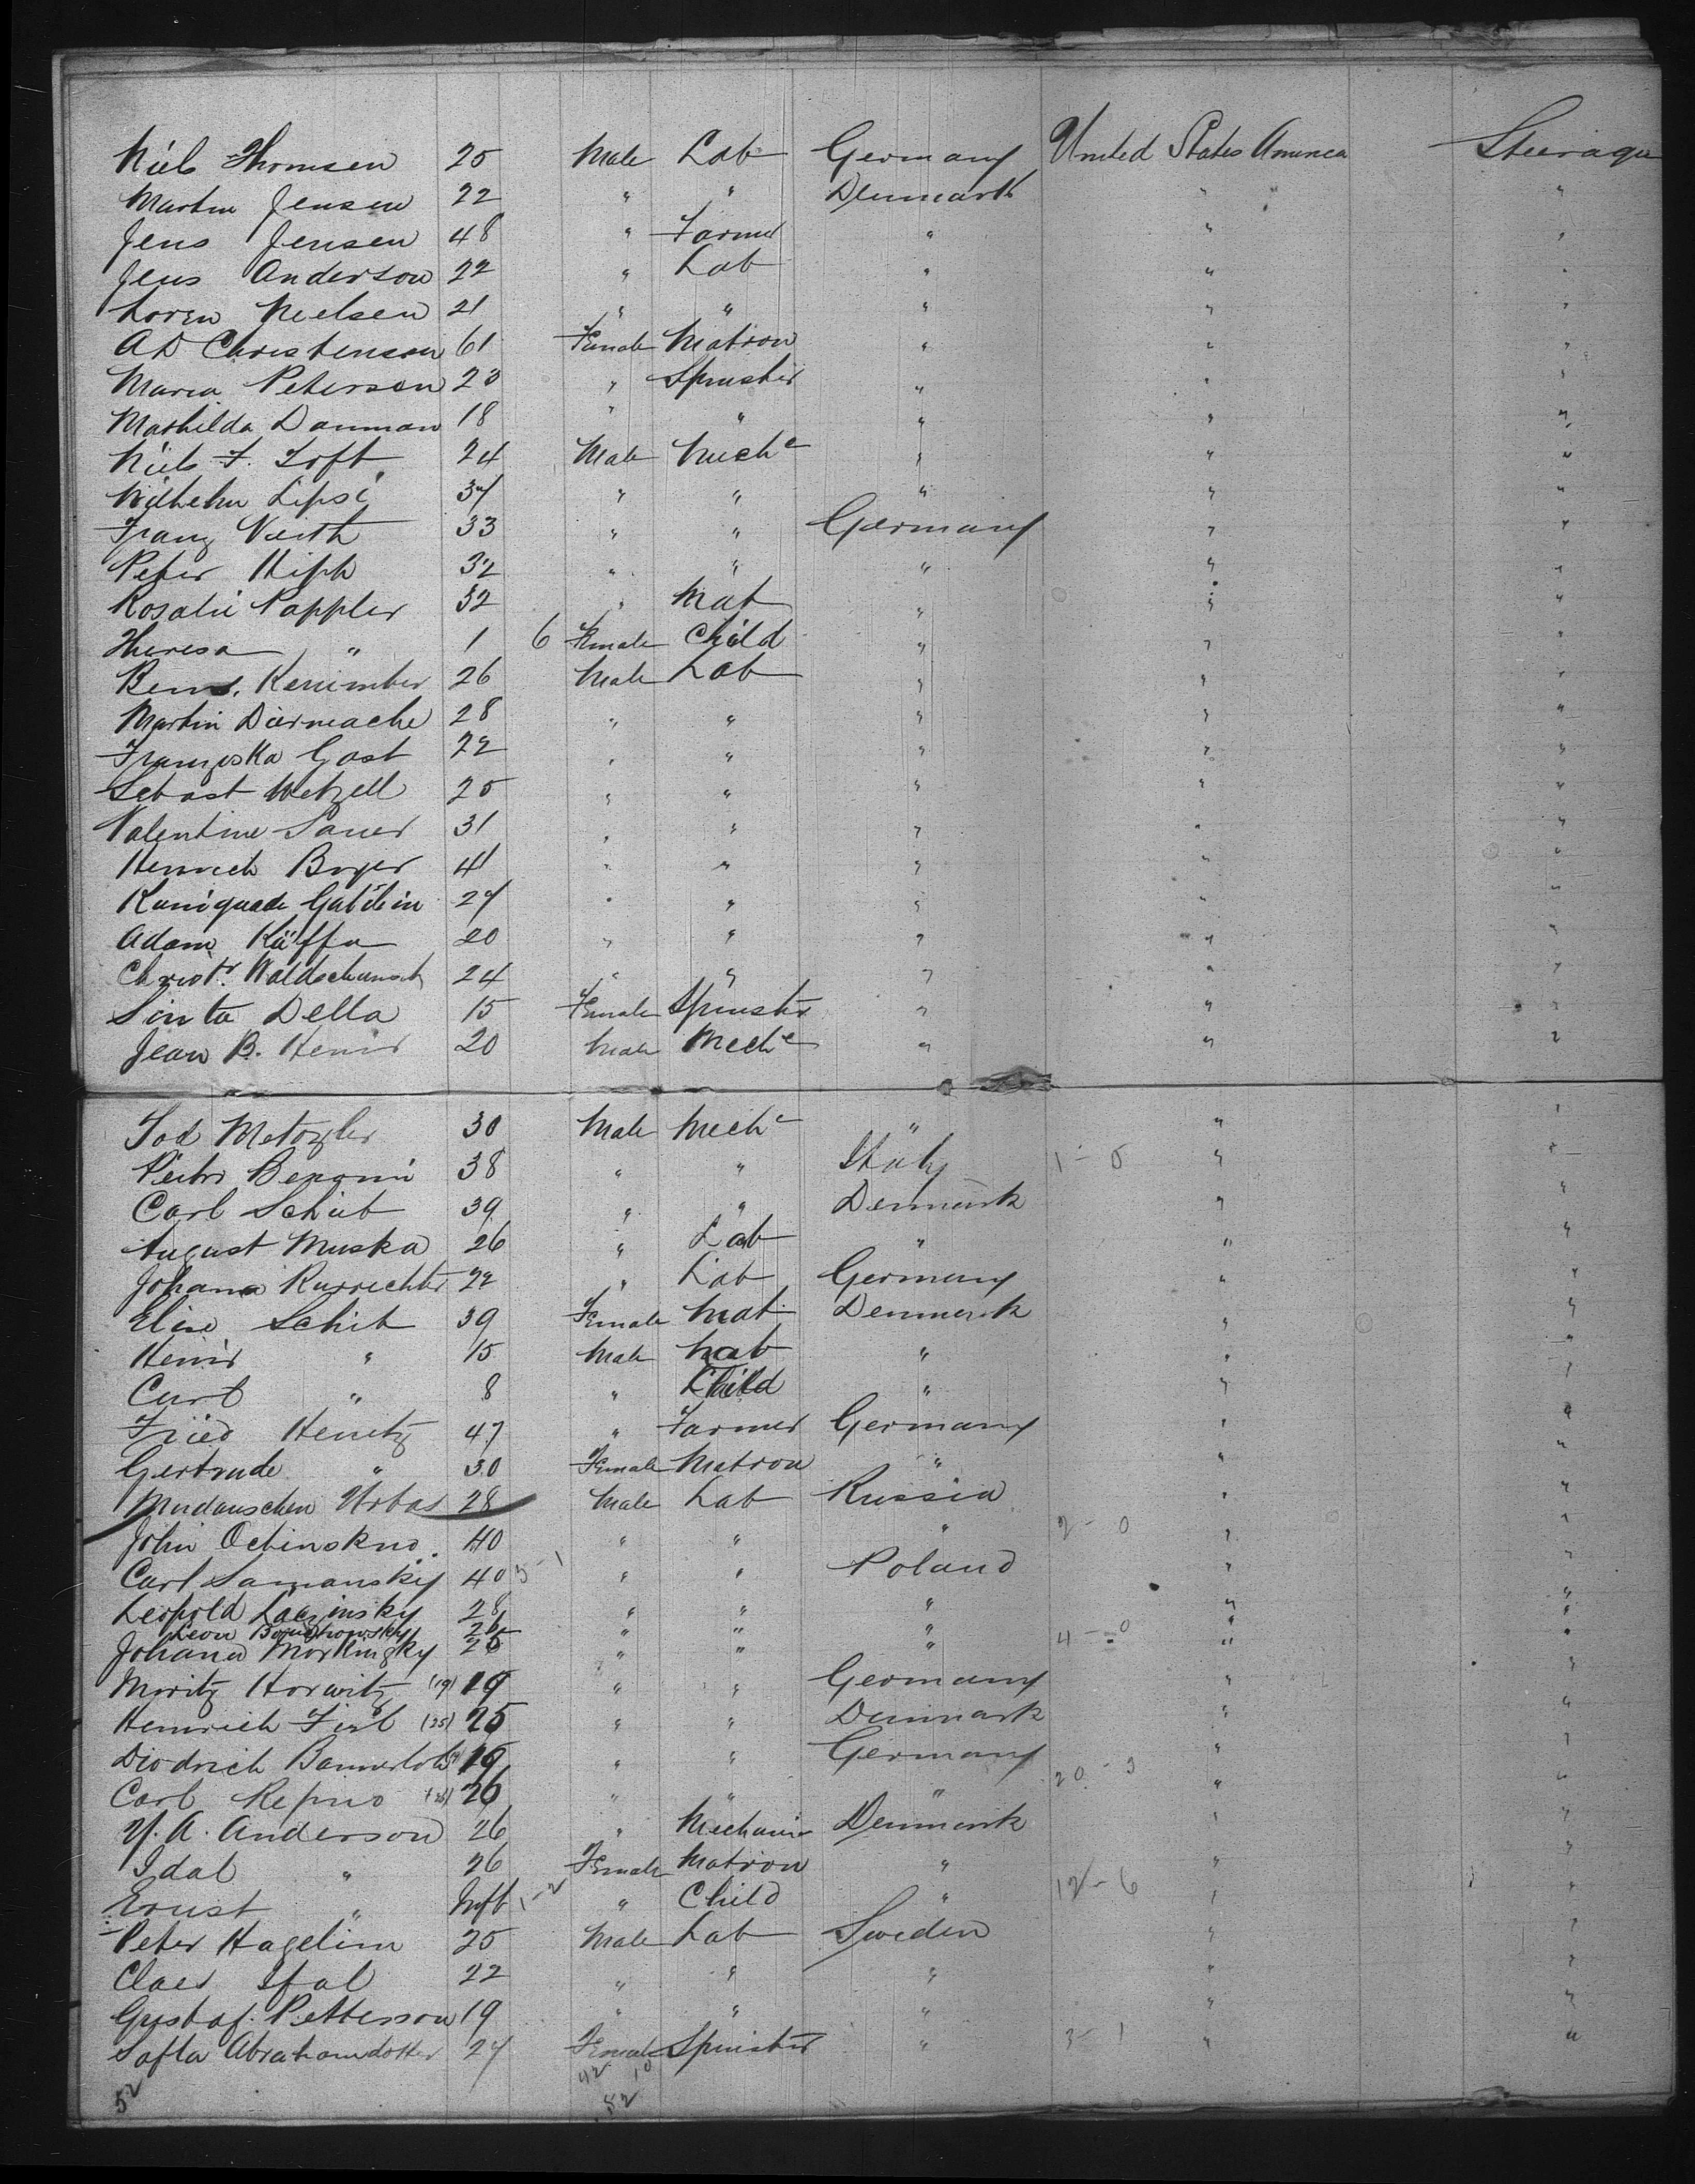 Niels Thomsen 25 Male Lab Germany United States America Steerage
Martin Jensen 22 " " Denmark " "
Jens Jensen 48 " Farmer " " "
Jens Anderson 22 " Lab " " "
Loren Nielsen 21 " " " " "
AD Christenson 61 Female Matron " " "
Maria Peterson 23 " Spinster " " "
Mathilda Danman 18 " " " " "
Niels F. Toft 24 Male Mech " " "
Wilhelm Lipsi 34 " " " " "
Franz Veith 33 " " Germany " "
Peter Hiph 32 " " " " "
Rosalie Pappler 32 " Mat " " "
Theresa " 1 6 Female Child " " "
26 Male Lab " " "
Martin Diermache 28 " " " " "
Franziska Gast 22 " " " " "
Sebast Wetzell 25 " " " " "
Valentine Sauer 31 " " " " "
Henrich Boyer 41 " " " " "
27 " " " " "
Adam Käffer 20 " " " " "
Christ. 24 " " " " "
Sinta Della 15 Female Spinster " " "
Jean B. Henir 20 Male Mech " " "
Metzgler 30 Male Mech " " "
38 " " Italy 1 - 0 " "
Carl Schib 39 " " Denmark " "
August Muska 26 " Lab " " "
Johana 22 " Lab Germany " "
Elise Schib 39 Female Mat Denmark " "
Henir " 15 Male Lab " " "
Carl " 8 " Child " " "
Fried Henetz 47 " Farmer Germany " "
Gertrude " 30 Female Matron " " "
Urbas 28 Male Lab Russia " "
John 40 " " " 2 - 0 " "
Carl Samansky 40 3 - 1 " " Poland " "
Leopold Lazinsky 28 " " " " "
Leon 26 " " " 4 - 0 " "
Johana 25 " " " " "
Moritz Horwitz (19) 19 " " Germany " "
Heinrich Firl (25) 25 " " Denmark " "
Diedrich 19 " " Germany " "
Carl Repino (26) 26 " " " 20 - 3 " "
Y. A. Anderson 26 " Mechanic Denmark " "
Idal " 26 Female Matron " " "
Ernst " Inft 1 - 2 " Child " 12 - 6 " "
Peter Hagelim 25 Male Lab Sweden " "
Claes Ifal 22 " " " " "
Gustaf. Petterson 19 " " " " "
Sofia Abrahamdotter 27 Female Spinster " 3 - 1 " "
52 42 10
52